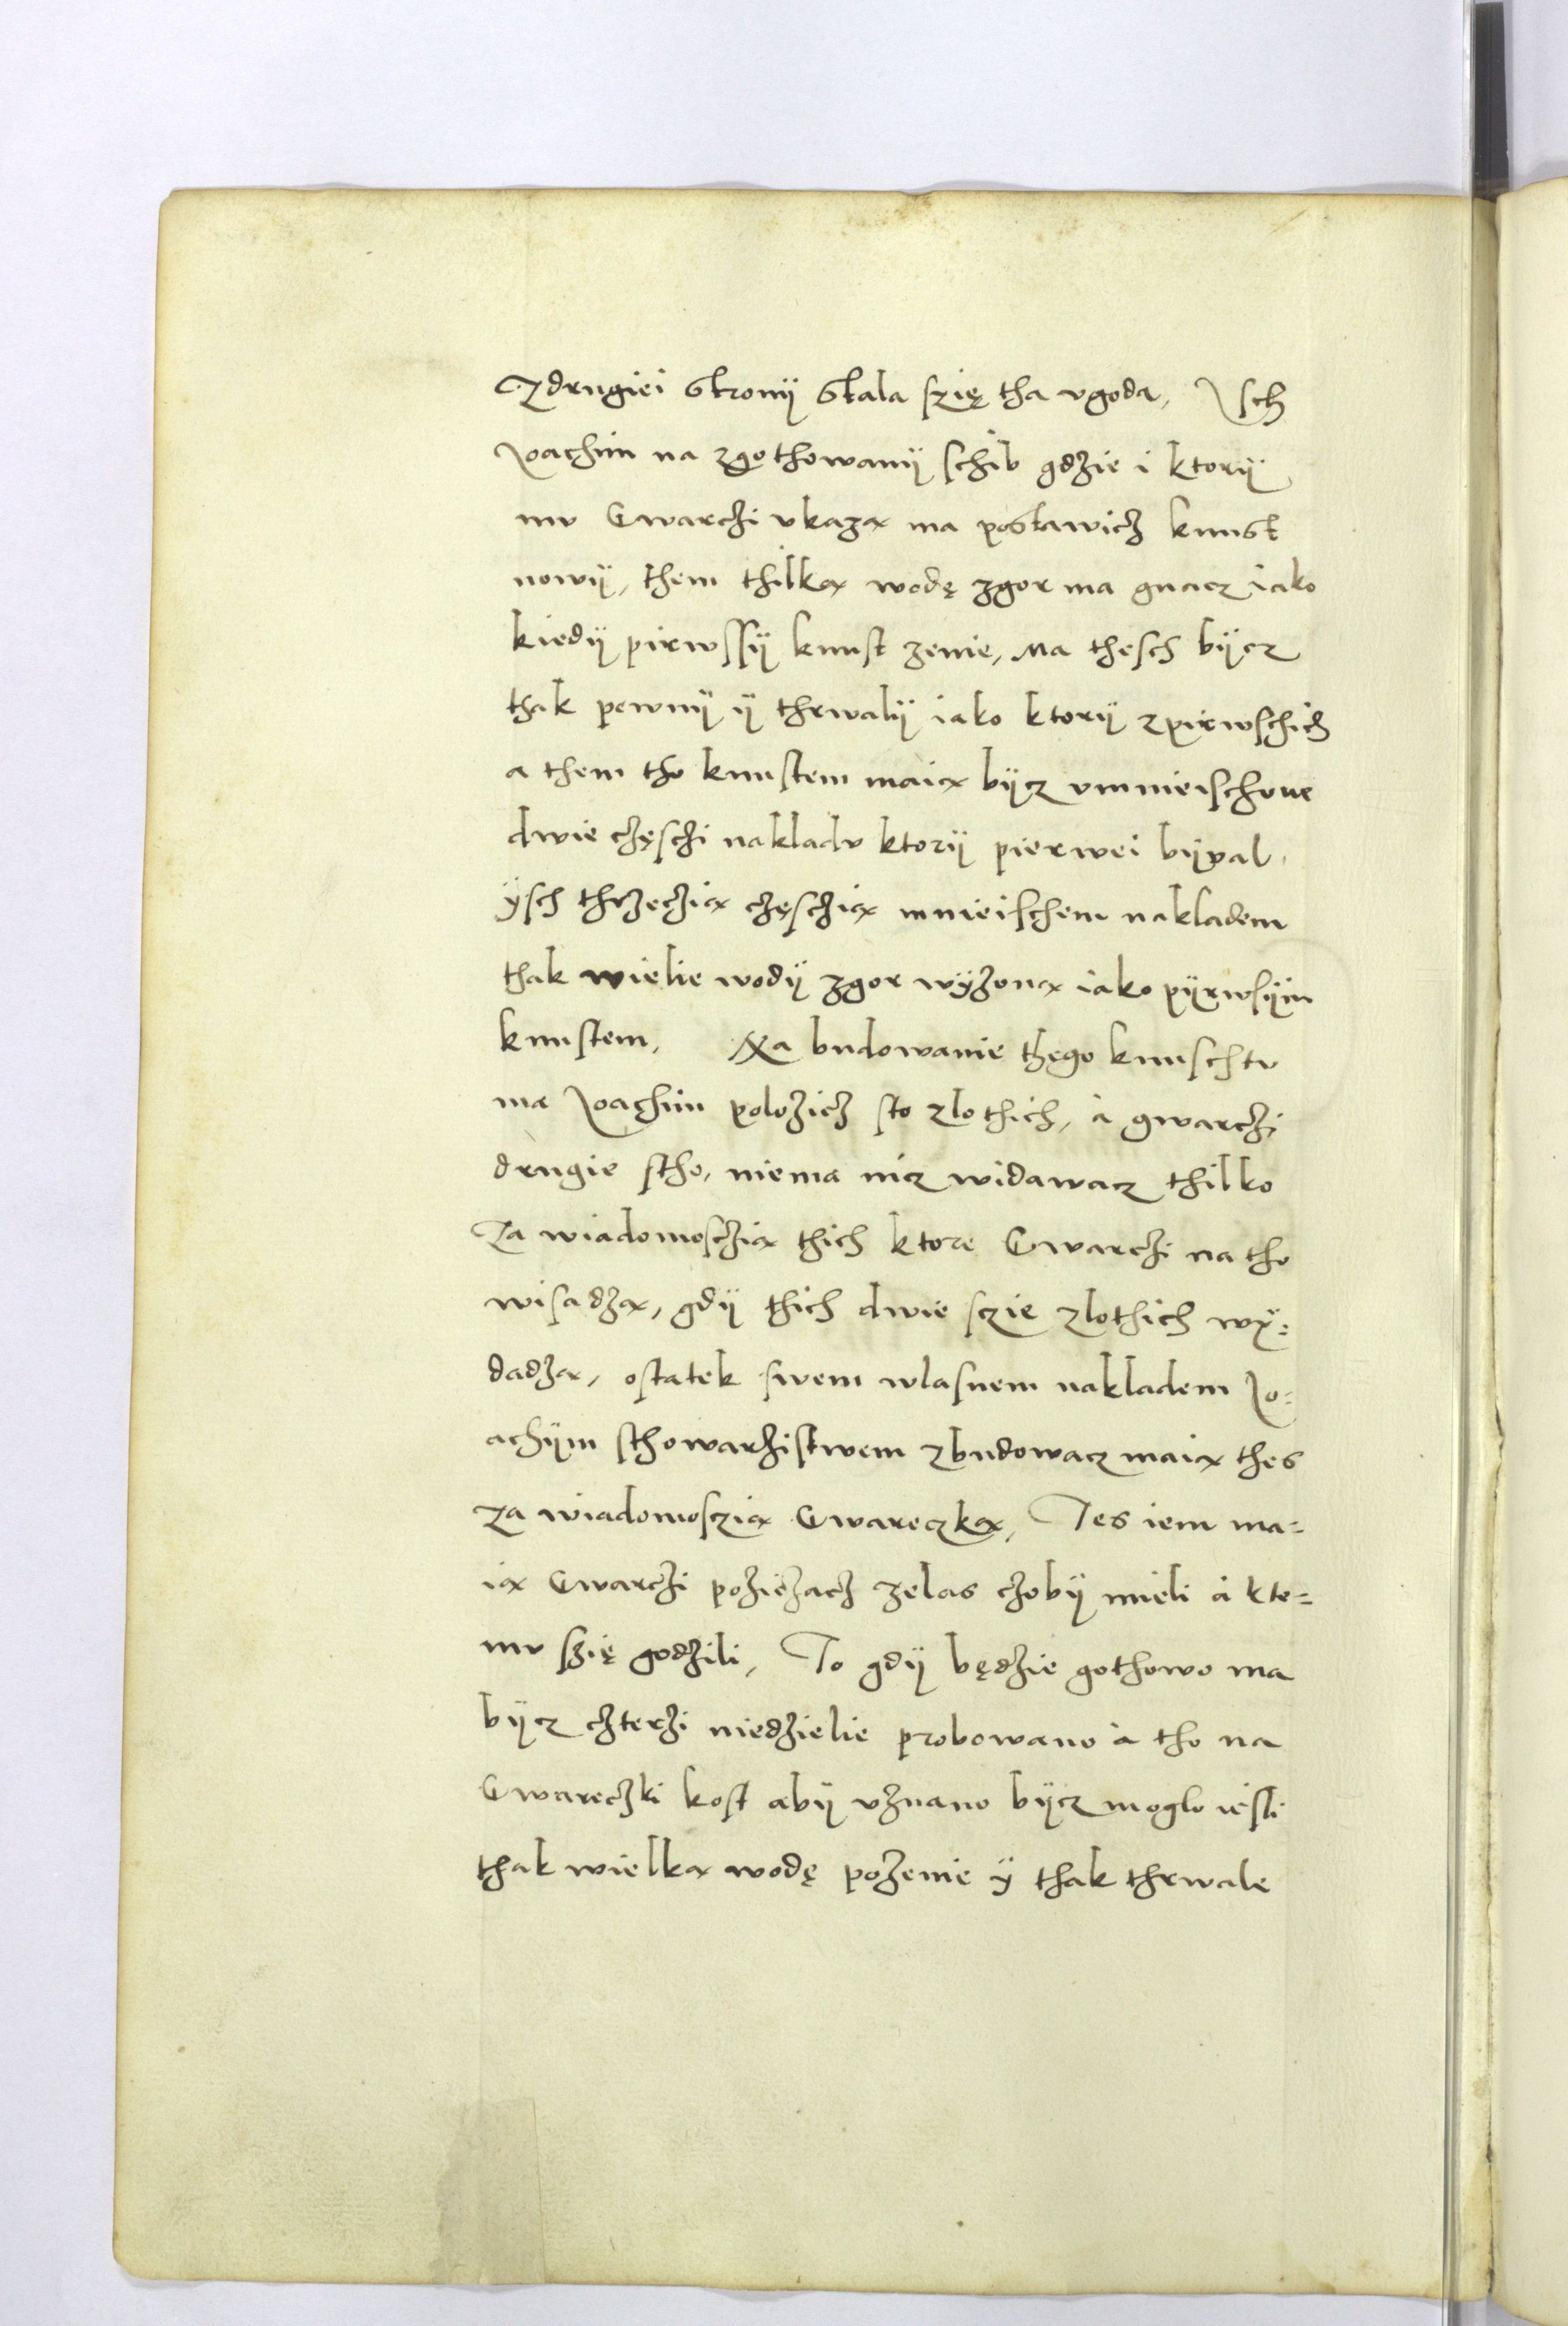 Zdrugiei strony stala szię tha vgoda, Isch
Joachim na zgothowany schib gdzie i ktory
mv Gwarczi vkazą ma postawicz kunst
nowy, them thilką wodę zgor ma gnacz iako
kiedy pirwssy kunst zenie, Ma thesch bycz
thak pewny y thrwaly iako ktory zpirwschich
a them tho kunstem maią bycz vmnieischone
dwie częsczi nakladv ktory pierwei bywal,
ysch thrzeczią częsczią mnieischem nakladem
thak wielie wody zgor wyzoną iako pyrwsym
kunstem, Na budowanie thego kunschtv
ma Joachim polozicz sto zlothich, a gwarczi
drugie stho, niema nicz widawacz thilko
Za wiadomosczią thich ktore Gwarczi na tho
wisadzą, gdy thich dwie szcie zlothich wy=
dadzą, ostatek swem wlasnem nakladem Jo=
achym sthowarzistwem zbudowacz maią thes
za wiadomoszcią Gwareczką, Tes iem ma=
ią Gwarczi poziczacz zelas czoby mieli a kte=
mv szię godzili, To gdy będzie gothowo ma
bycz czterzi niedzielie probowano a tho na
Gwareczki kost aby vznano bycz moglo iesli
thak wielką wodę pozenie y thak thrwale